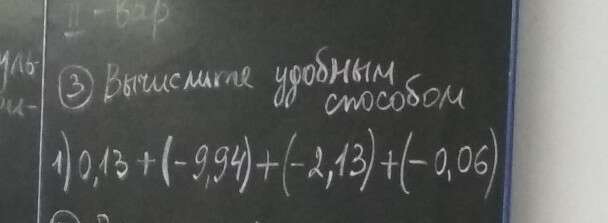 II - вар
③ Вычислите удобным
способом
1) 0,13 + (-9,94) + (-2,13) + (-0,06)